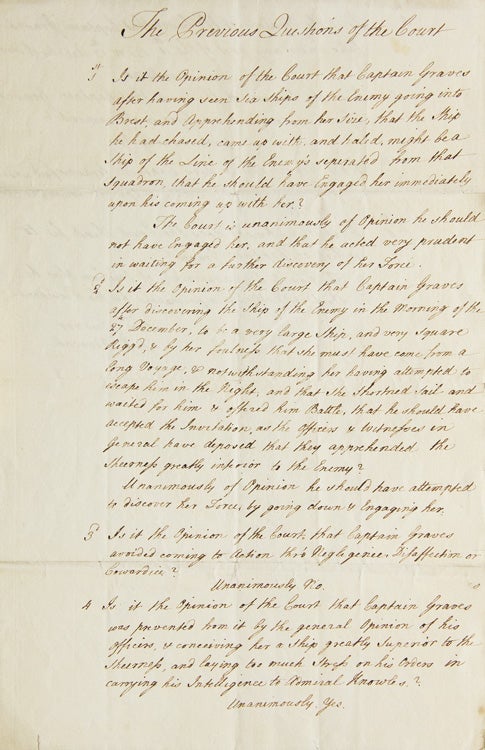 The Previous Questions of the Court
1 Is it the Opinion of the Court that Captain Graves
after having seen Sea Ships of the Enemy going into
Brest, and Apprehending from her Size, that the Ship
he had chased, came up with, and haled, might be a
Ship of the Line of the Enemy's seperated from that
Squadron, that he should have Engaged her immediately
upon his coming up with her?
The Court is unanimously of Opinion he should
not have Engaged her, and that he acted very prudent
in waiting for a further discovery of her Force.
2d Is it the Opinion of the Court that Captain Graves
after discovering the Ship of the Enemy in the Morning of the
27 December, to be a very large Ship, and very Square
Rigg'd, & by her foulness that she must have come from a
long Voyage, & notwithstanding her having attempted to
escape him in the Night, and that she Shortned Sail and
waited for him & offered him Battle, that he should have
accepted the Invitation, as the Officers & Witnesses in
General have deposed that they apprehended the
Sheerness greatly inferior to the Enemy?
Unanimously of Opinion he should have attempted
to discover her Force, by going down & Engaging her.
3 Is it the Opinion of the Court, that Captain Graves
avoided coming to Action thro Negligence, Disaffection or
Cowardice?
Unanimously No.
4 Is it the Opinion of the Court that Captain Graves
was prevented from it by the general Opinion of his
Officers, & conceiving her a Ship greatly Superior to the
Sheerness, and laying too much Stress on his Orders in
carrying his Intelligence to Admiral Knowles?
Unanimously Yes.